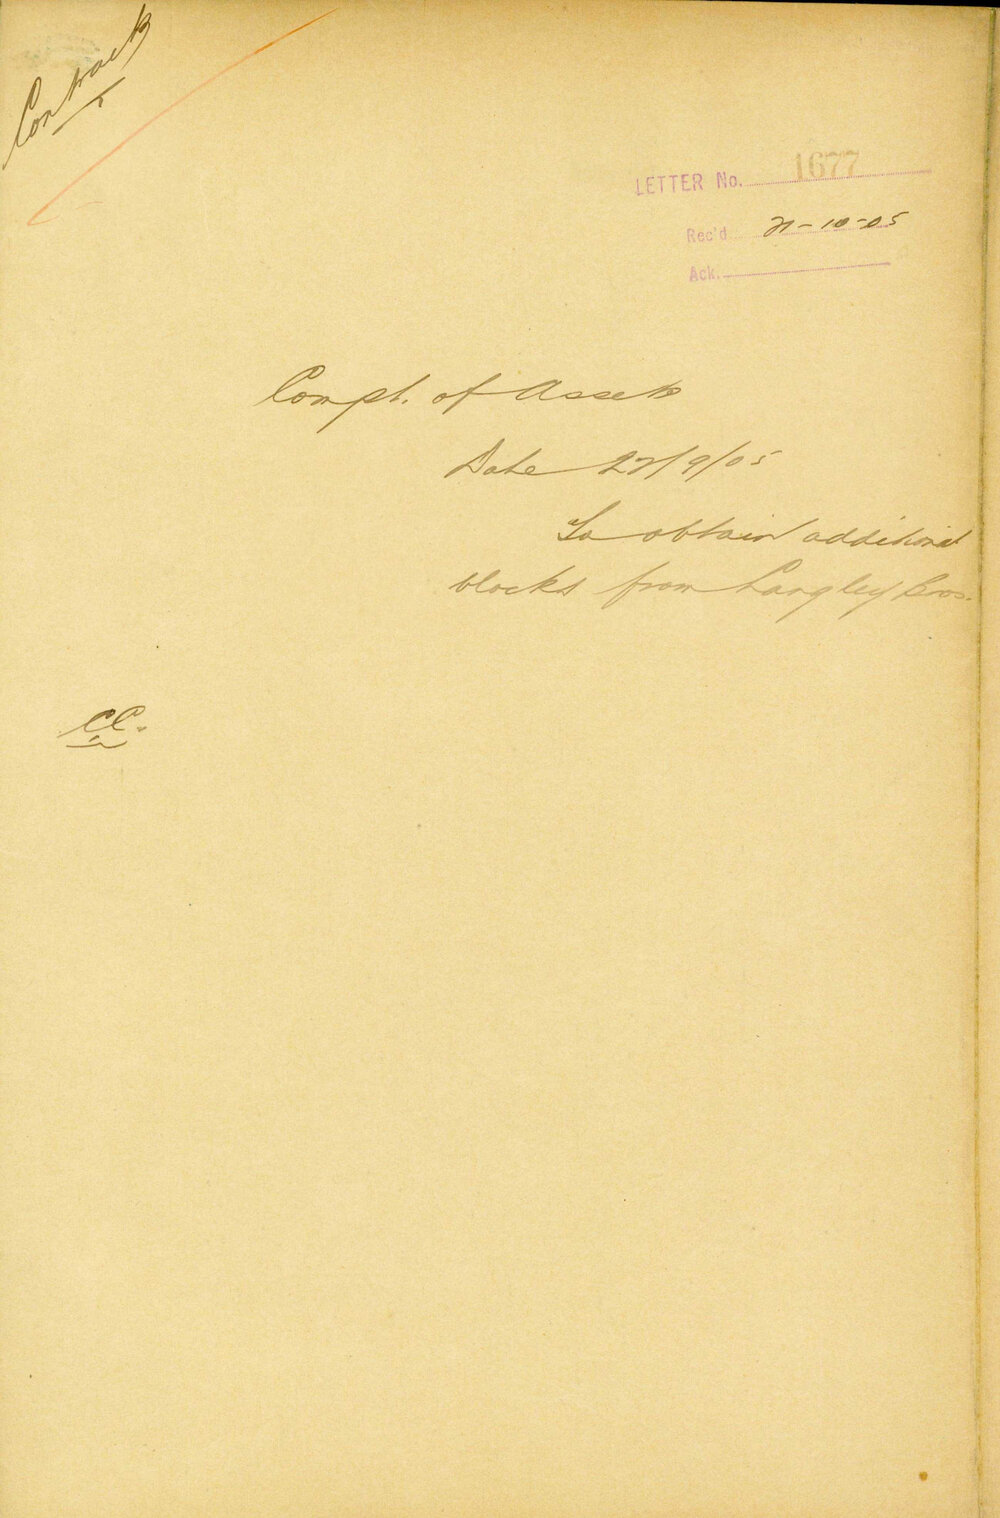 Contracts
LETTER No. 1677
Rec'd 21-10-05
Ack.
Compt. of Assets
Date 27/9/05
To obtain additional
blocks from Langley Bros.
CC.